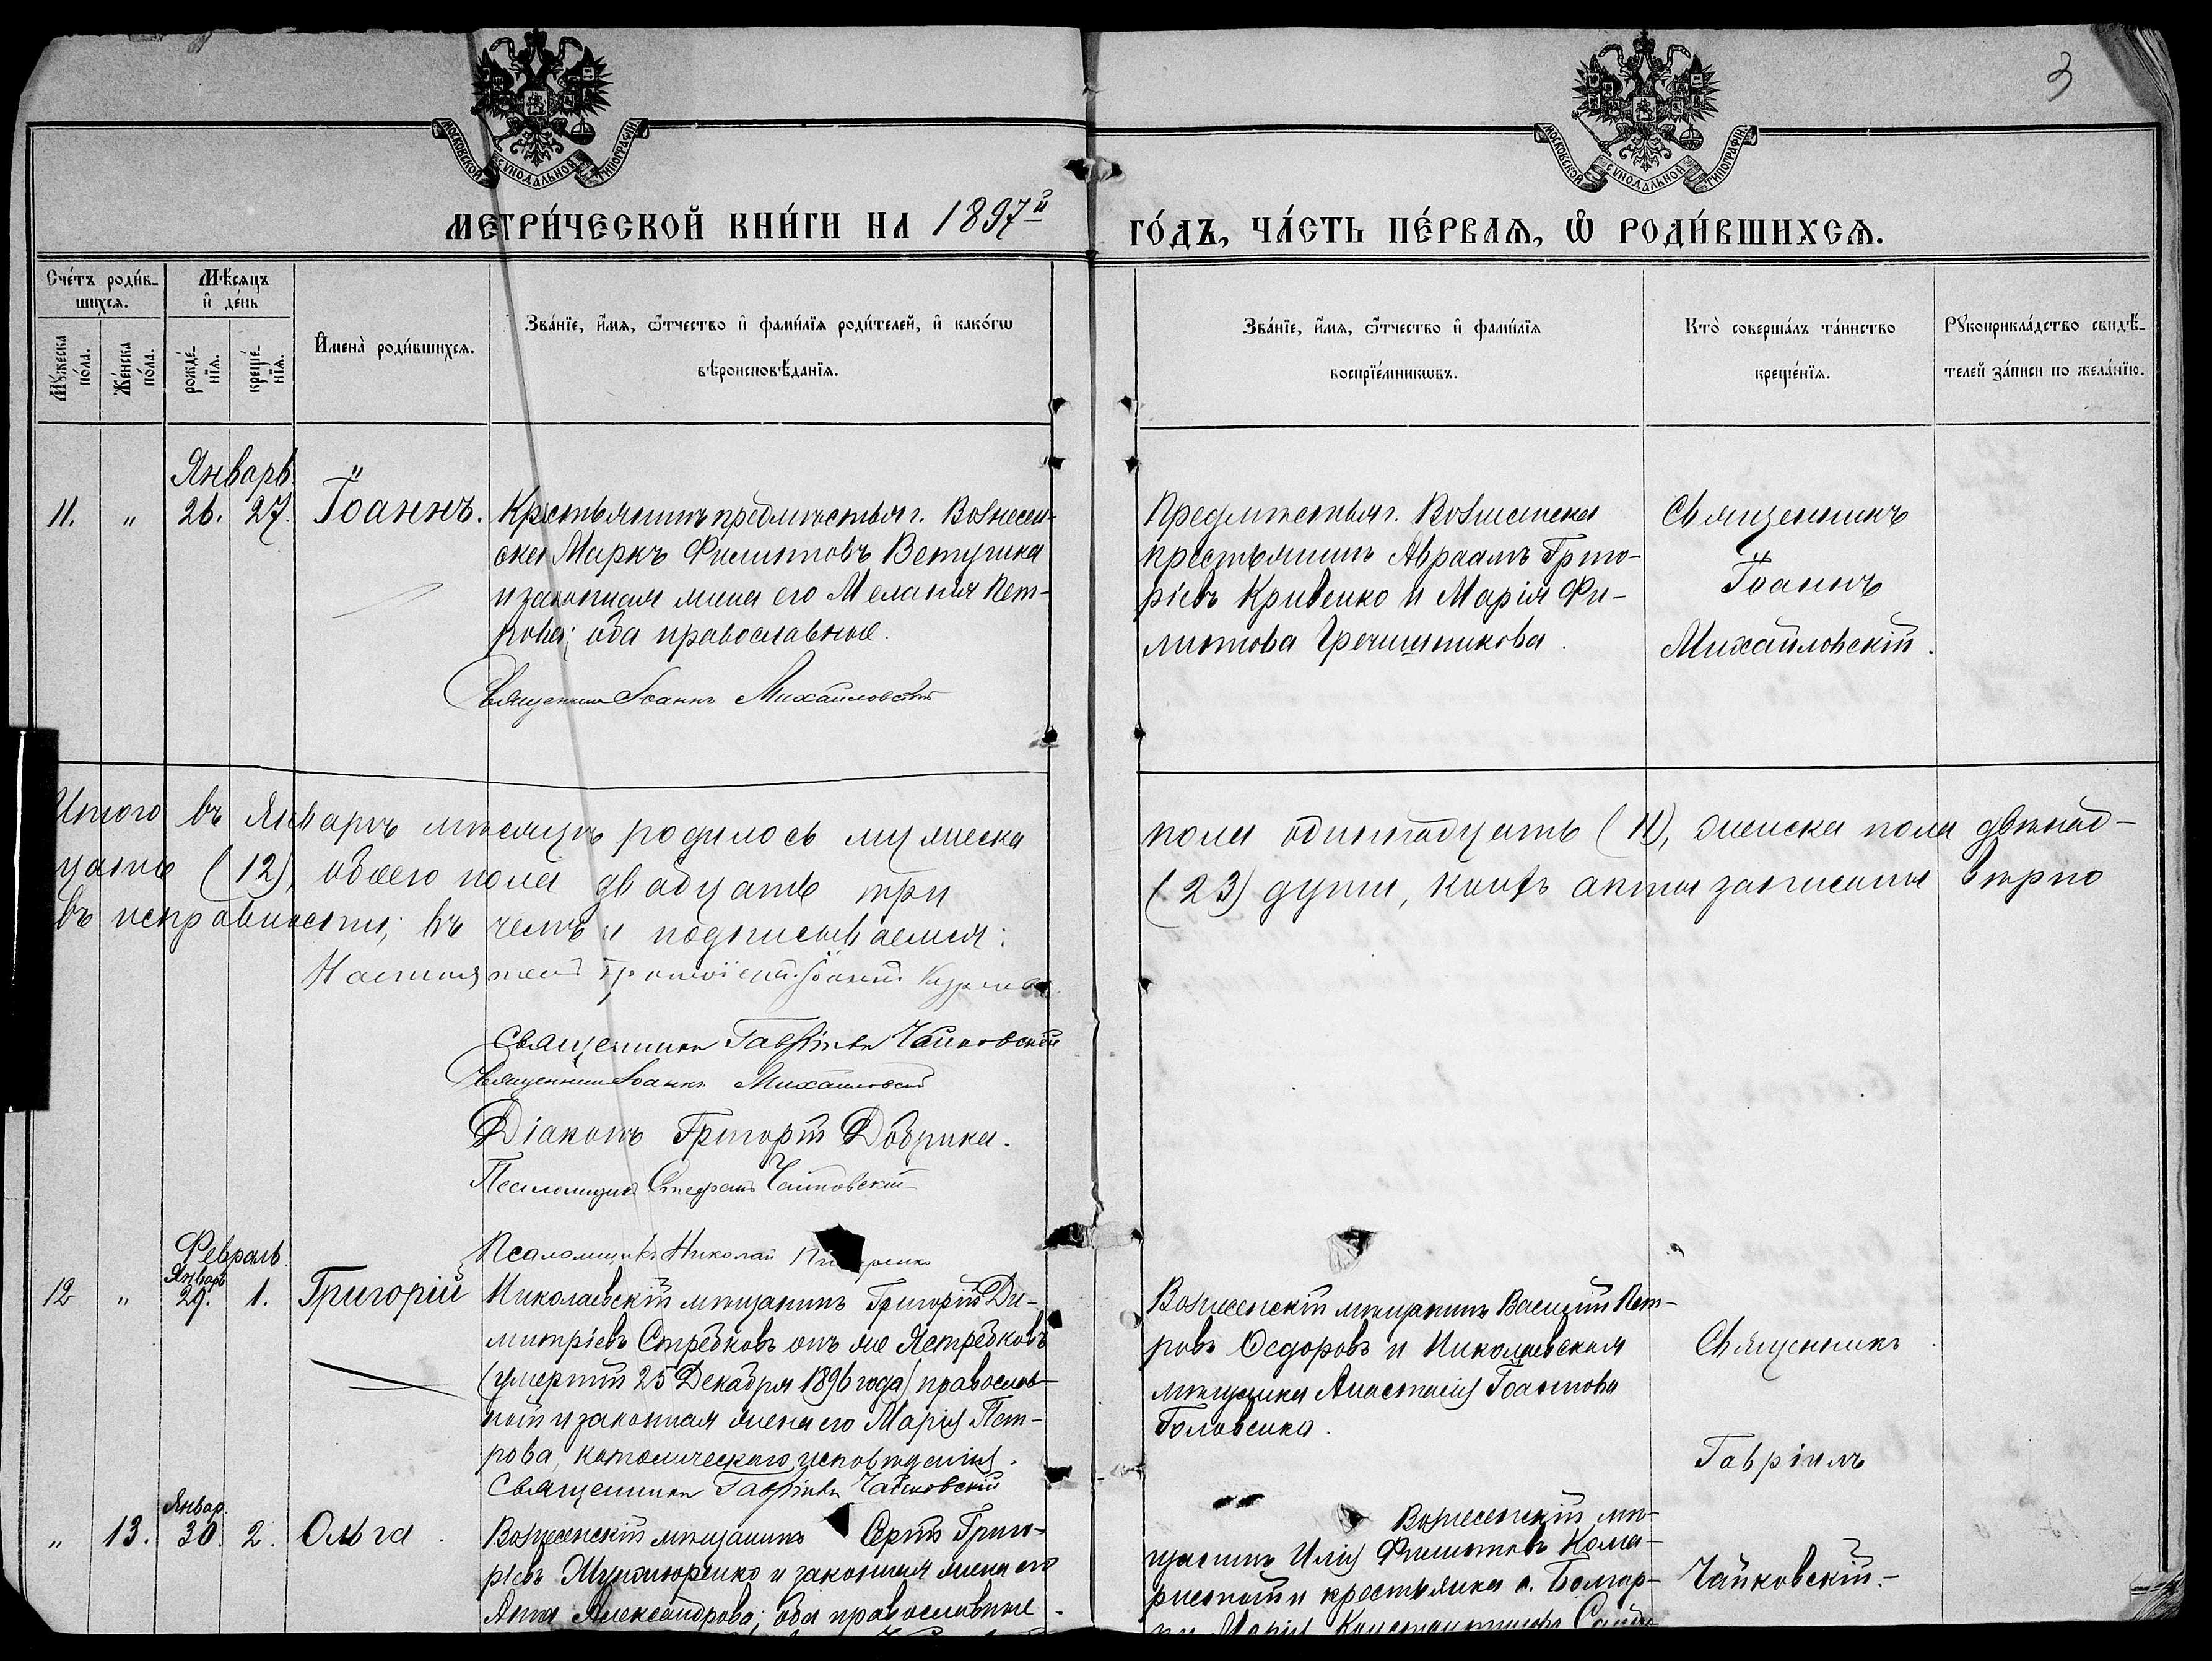 3
МОСКОВСКОЙ СѴНОДАЛЬНОЙ ТИПОГРАФІИ.
МОСКОВСКОЙ СѴНОДАЛЬНОЙ ТИПОГРАФІИ.
МЕТРИ́ЧЕСКОЙ КНИ́ГИ НА 1897й ГО́ДЪ, ЧА́СТЬ ПЕ́РВАѦ, Ѡ РОДИ́ВШИХСѦ.
Сче́тъ роди́в-
шихся.
Мѣ́сяцъ
и де́нь
Мꙋ́жеска
по́ла.
Же́нска
по́ла.
рожде́-
нїя.
креще́-
нїя.
Имена̀ роди́вшихся.
Зва́нїе, и́мя, ѻ҆́тчество и фами́лїя роди́телей, и како́гѡ
вѣроисповѣ́данїя.
Зва́нїе, и́мя, ѻ҆́тчество и фами́лїя
воспрїе́мникѡвъ.
Кто̀ соверша́лъ та́инство
креще́нїя.
Рꙋкоприкла́дство свидѣ́-
телей за́писи по жела́нїю.
Январь
11. " 26. 27. Іоаннъ.
Крестьянинъ предмѣстья г. Вознесен-
ска Маркъ Филиповъ Ветушка
и законная жена его Меланія Пет-
рова; оба православные.
Священникъ Іоаннъ Михайловскій
Предмѣстья г. Вознесенска
крестьянинъ Авраамъ Григо-
ріевъ Кривенко и Марія Фи-
липова Гречишникова.
Священникъ
Іоаннъ
Михайловскій.
Итого въ Январѣ мѣсяцѣ родилось мужеска пола одиннадцать (11), женска пола двѣнад-
цать (12), обоего пола двадцать три (23) души, коихъ акты записаны вѣрно
въ исправности; въ чемъ и подписываемся:
Настоятель Протоіерей Іоаннъ
Священникъ Гавріилъ Чайковскій
Священникъ Іоаннъ Михайловскій
Діаконъ Григорій Добрика.
Псаломщикъ Стефанъ Чайковскій
Псаломщикъ Николай
Февраль.
Январь
12 " 29. 1. Григорій
Николаевскій мѣщанинъ Григорій Ди-
митріевъ Стребковъ онъ же Ястребковъ
(умершій 25 Декабря 1896 года) православ-
ный и законная жена его Марія Пет-
рова, католическаго исповѣданія.
Священникъ Гавріилъ Чайковскій
Вознесенскій мѣщанинъ Василій Пет-
ровъ Ѳедоровъ и Николаевская
мѣщанка Анастасія Іоаннова
Головенко.
Священникъ
Гавріилъ
Чайковскій.
Январ.
" 13. 30. 2. Ольга.
Вознесенскій мѣщанинъ Сергій Григо-
ріевъ и законная жена его
Анна Александрова; оба православные.
Вознесенскій мѣ-
щанинъ Илія Филиповъ
и крестьянка с. Болгар-
ки Марія Константинова